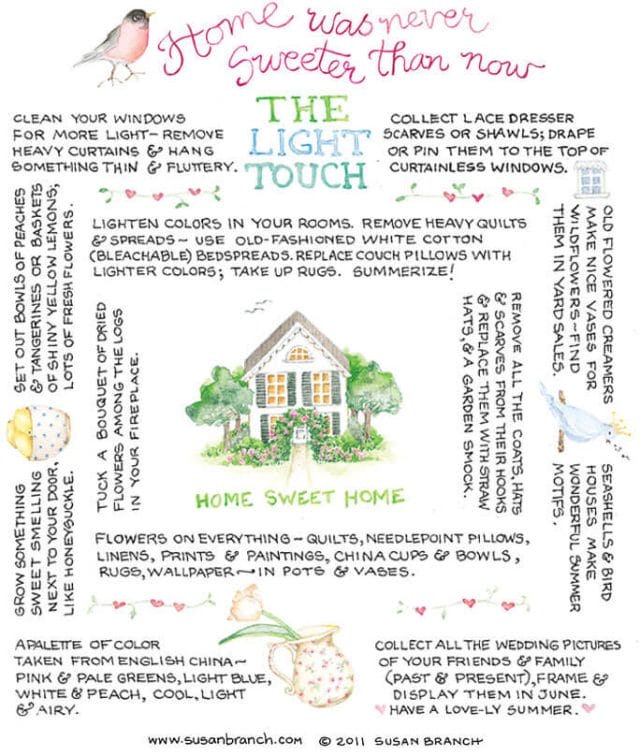 Home was never
Sweeter than now
THE
LIGHT
TOUCH
CLEAN YOUR WINDOWS
FOR MORE LIGHT- REMOVE
HEAVY CURTAINS & HANG
SOMETHING THIN & FLUTTERY.
COLLECT LACE DRESSER
SCARVES OR SHAWLS; DRAPE
OR PIN THEM TO THE TOP OF
CURTAINLESS WINDOWS.
SET OUT BOWLS OF PEACHES
& TANGERINES OR BASKETS
OF SHINY YELLOW LEMONS;
LOTS OF FRESH FLOWERS.
LIGHTEN COLORS IN YOUR ROOMS. REMOVE HEAVY QUILTS
& SPREADS~ USE OLD-FASHIONED WHITE COTTON
(BLEACHABLE) BEDSPREADS. REPLACE COUCH PILLOWS WITH
LIGHTER COLORS; TAKE UP RUGS. SUMMERIZE!
OLD FLOWERED CREAMERS
MAKE NICE VASES FOR
WILDFLOWERS~FIND
THEM IN YARD SALES.
TUCK A BOUQUET OF DRIED
FLOWERS AMONG THE LOGS
IN YOUR FIREPLACE.
REMOVE ALL THE COATS, HATS
& SCARVES FROM THEIR HOOKS
& REPLACE THEM WITH STRAW
HATS, & A GARDEN SMOCK.
HOME SWEET HOME
GROW SOMETHING
SWEET SMELLING
NEXT TO YOUR DOOR,
LIKE HONEYSUCKLE.
SEASHELLS & BIRD
HOUSES MAKE
WONDERFUL SUMMER
MOTIFS.
FLOWERS ON EVERYTHING ~ QUILTS, NEEDLEPOINT PILLOWS,
LINENS, PRINTS & PAINTINGS, CHINA CUPS & BOWLS,
RUGS, WALLPAPER ~ IN POTS & VASES.
A PALETTE OF COLOR
TAKEN FROM ENGLISH CHINA~
PINK & PALE GREENS, LIGHT BLUE,
WHITE & PEACH, COOL, LIGHT
& AIRY.
COLLECT ALL THE WEDDING PICTURES
OF YOUR FRIENDS & FAMILY
(PAST & PRESENT), FRAME &
DISPLAY THEM IN JUNE.
♥ HAVE A LOVE-LY SUMMER. ♥
www.SUSANBRANCH.COM © 2011 SUSAN BRANCH